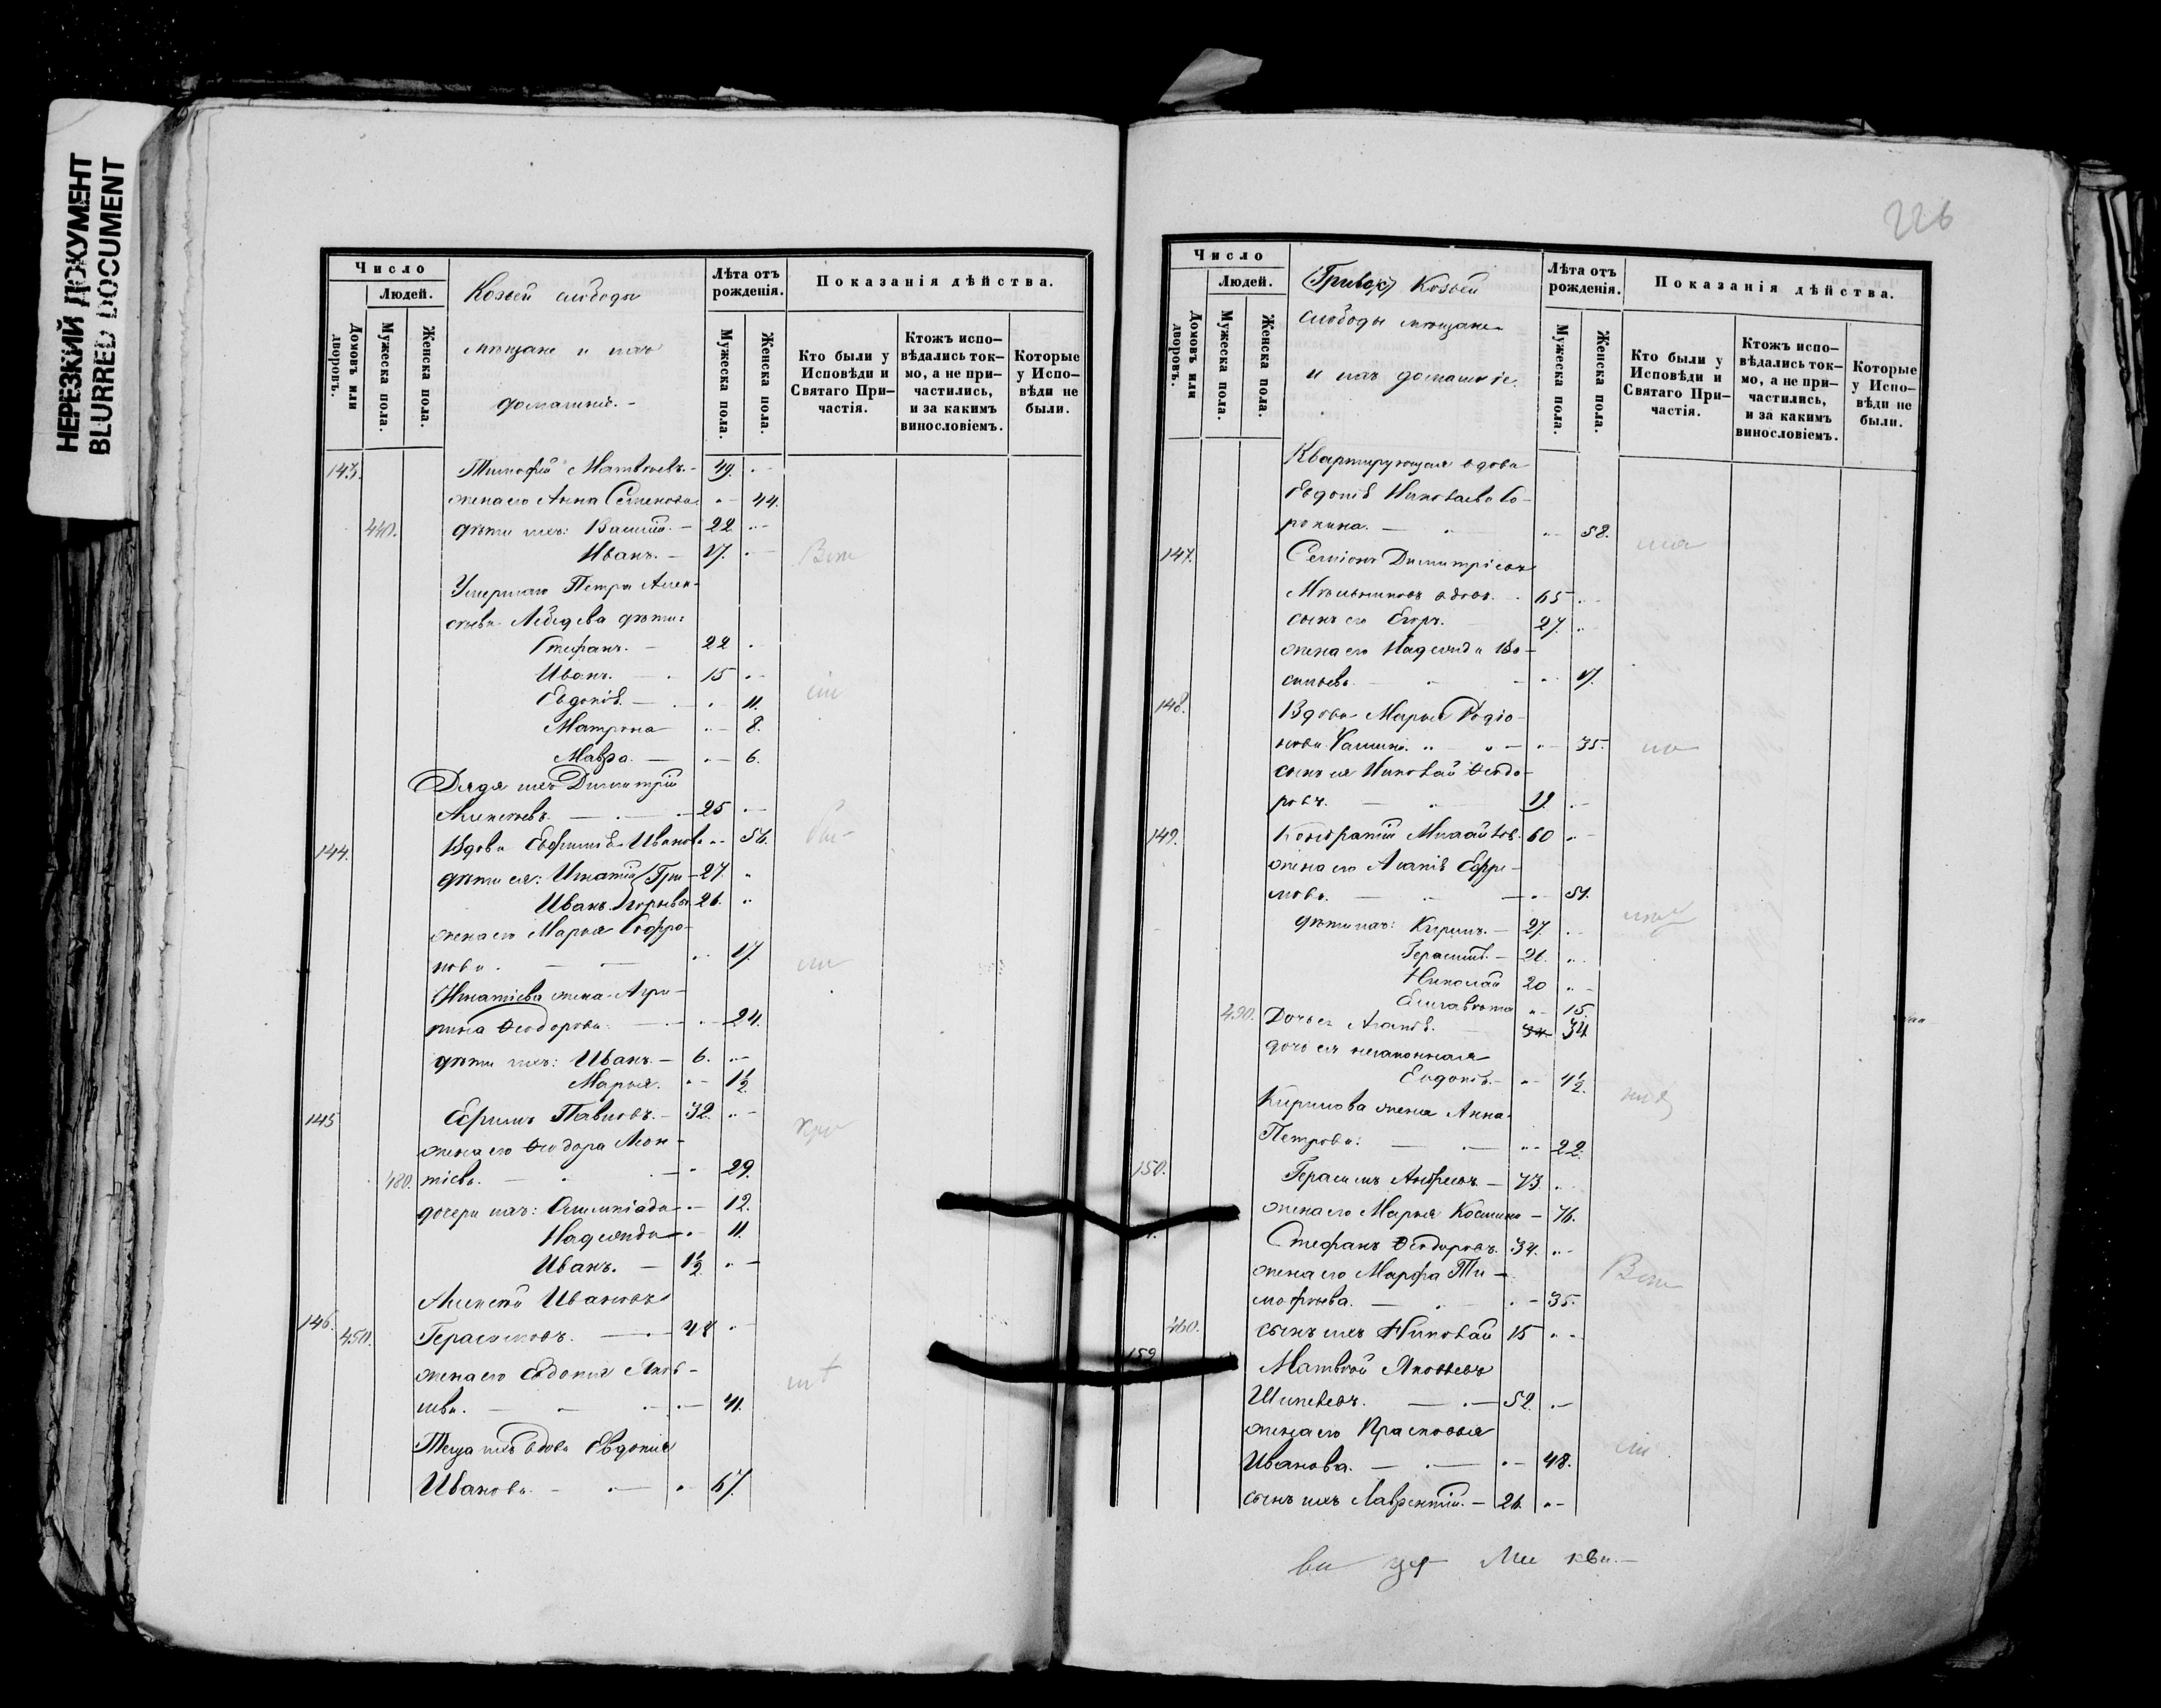 НЕРЕЗКИЙ ДОКУМЕНТ
BLURRED DOCUMENT
Число
Людей.
Домовъ или дворовъ.
Мужеска пола.
Женска пола.
Козьей слободы
мѣщане и ихъ
домашніе. -
Лѣта отъ рожденія.
Мужеска пола.
Женска пола.
Показанія дѣйства.
Кто были у Исповѣди и Святаго Причастія.
Ктожъ исповѣдались токмо, а не причастились, и за какимъ винословіемъ.
Которые у Исповѣди не были.
143. Тимофей Матвѣевъ. - 49.
жена его Анна Семенова 44.
440. дѣти ихъ: Василій. - 22
Иванъ. - 17.
Умершаго Петра Алек-
сѣева Лебедева дѣти:
Стефанъ. - 22
Иванъ. 15
Евдокія. - 11.
Матрона 8.
Мавра. - 6.
Дядя ихъ Димитрій
Алексѣевъ. 25
144. Вдова Евфимія Иванова 56.
дѣти ея: Игнатій Гри- 27.
Иванъ горьевы 26.
жена его Марья Софро-
нова. 17.
Игнатіева жена Агри-
пина Ѳеодорова. 24.
дѣти ихъ: Иванъ. - 6.
Марья. 1½
145 Ефимъ Павловъ. - 32.
жена его Ѳеодора Леон-
480. тіева. 29.
дочери ихъ: Олимпіада 12.
Надежда 11.
Иванъ. - 1½
Алексѣй Ивановъ
146. 450. Герасимовъ. 48
жена его Евдокія Яков-
лева. 41.
Теща ихъ вдова Евдокія
Иванова. 67.
226
Число
Людей.
Домовъ или дворовъ.
Мужеска пола.
Женска пола.
Козьей
слободы мѣщане
и ихъ домашніе.
Лѣта отъ рожденія.
Мужеска пола.
Женска пола.
Показанія дѣйства.
Кто были у Исповѣди и Святаго Причастія.
Ктожъ исповѣдались токмо, а не причастились, и за какимъ винословіемъ.
Которые у Исповѣди не были.
Квартирующая вдова
Евдокія Николаева Со-
рокина. 58.
147. Семіонъ Димитріевъ
Мѣльниковъ вдовъ. 65
сынъ его Егоръ. 27.
жена его Надежда Ва-
сильева. 17.
148. Вдова Марья Родіо-
нова 35.
сынъ ея Николай Ѳеодо-
ровъ. 19.
149. Кондратій Михайловъ. 60
жена его Агапія Ефре-
мова. 51.
дѣти ихъ: Кирилъ. - 27.
Герасимъ. - 21.
Николай 20
Елисавета 15.
490. Дочь его Агапія. 34
дочь ея незаконная
Евдокія. - 4½
Кирилова жена Анна
Петрова. 22.
150. Герасимъ Андреевъ. - 73.
жена его Марья Косьмина - 76.
Стефанъ Ѳеодоровъ. 34.
жена его Марфа Ти-
мофѣева. 35.
460. сынъ ихъ Николай 15
152 Матвѣй Яковлевъ
52.
жена его Прасковья
Иванова. 48.
сынъ ихъ Лаврентій. - 26.